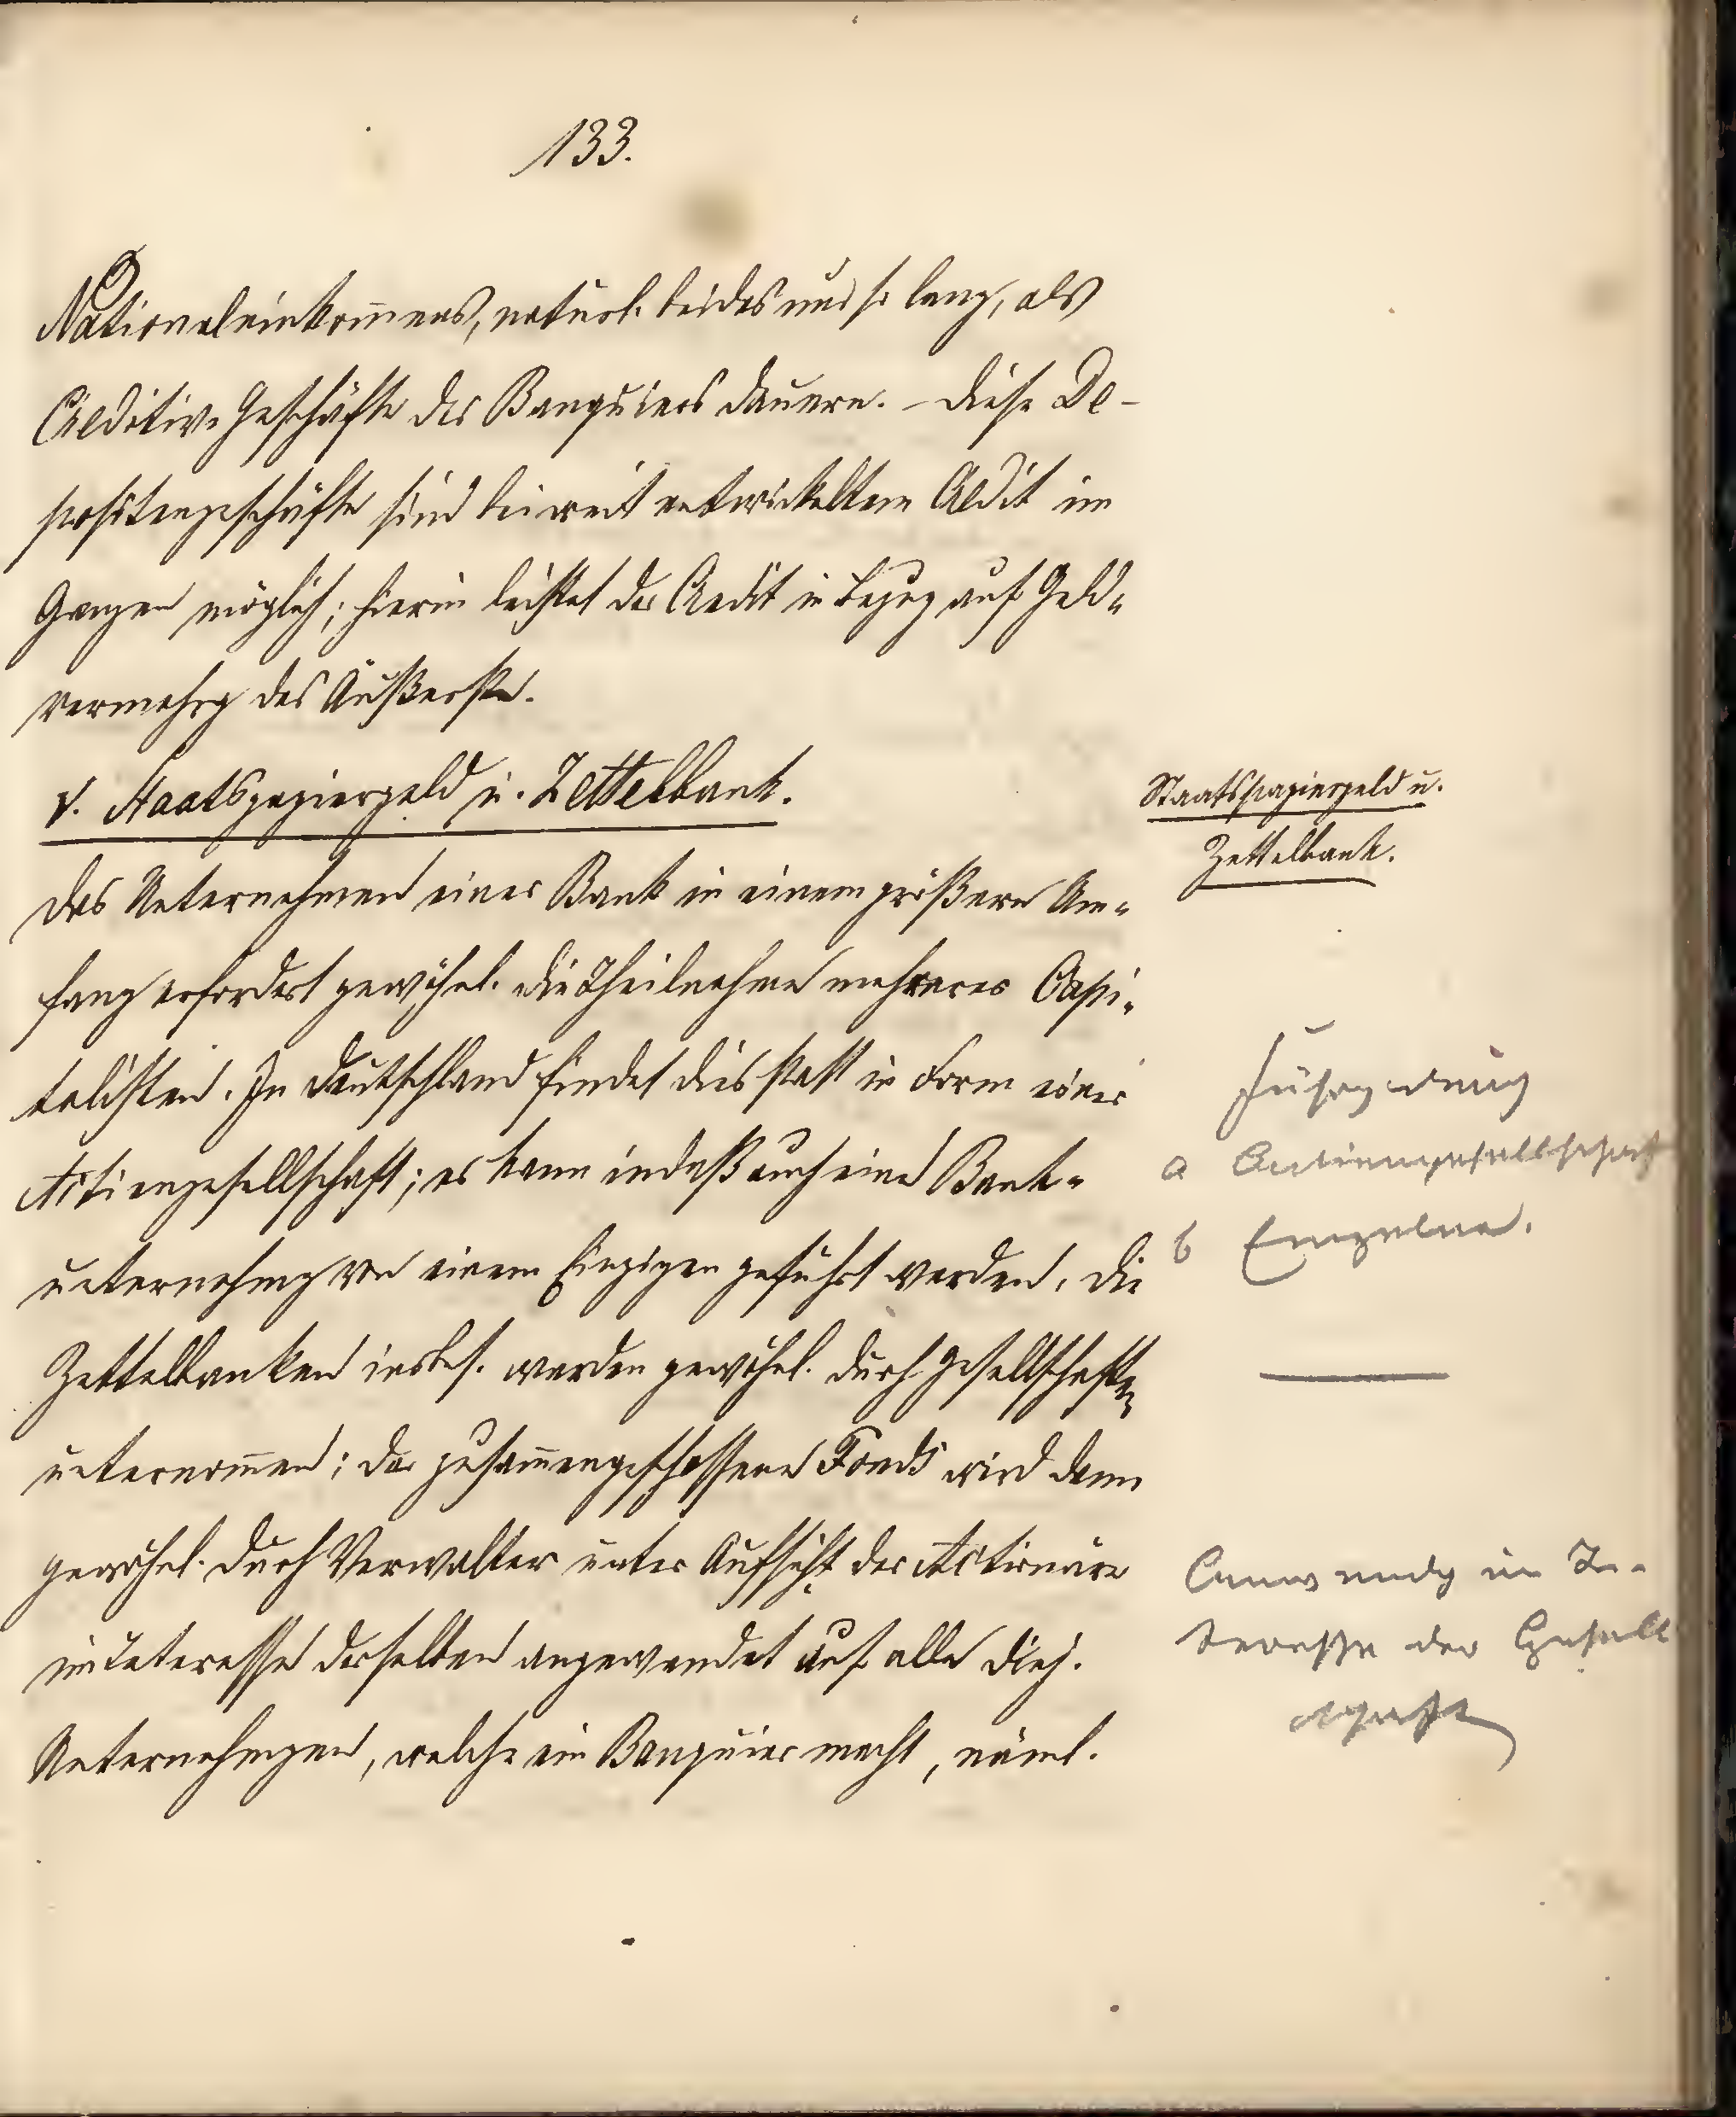 133.
Nationaleinkom̅ens, natürl. beides nur so lang, als
Creditiv-Geschäfte des Banquiers dauern. – Diese De-
positengeschäfte sind bei weit entwickeltem Credit im
Ganzen möglich; hierin leistet der Credit in Bezug auf Geld-
vermehrg das Äußerste.
V. Staatspapiergeld u. Zettelbank.
Staatspapiergeld u.
Zettelbank.
Das Unternehmen einer Bank in einem größern Um-
fang erfordert gewöhnl. die Theilnahme mehrerer Capi-
talisten. In Deutschland findet dies statt in Form einer
Actiengesellschaft; es kann indeß auch eine Bank-
unternehmg von einem Einzigen geführt werden. Die
Zettelbanken insbes. werden gewöhnl. durch Gesellschaften
unternom̅en; der zusam̅engeschossene Fonds wird dann
gewöhnl. durch Verwalter unter Aufsicht der Actionäre
im Interesse derselben angewendet auf alle diej.
Unternehmgen, welche ein Banquier macht, näml.
Führg durch
a Actiengesellschaft
b Einzelne.
Anwendg im In-
teresse der Gesell
schaft